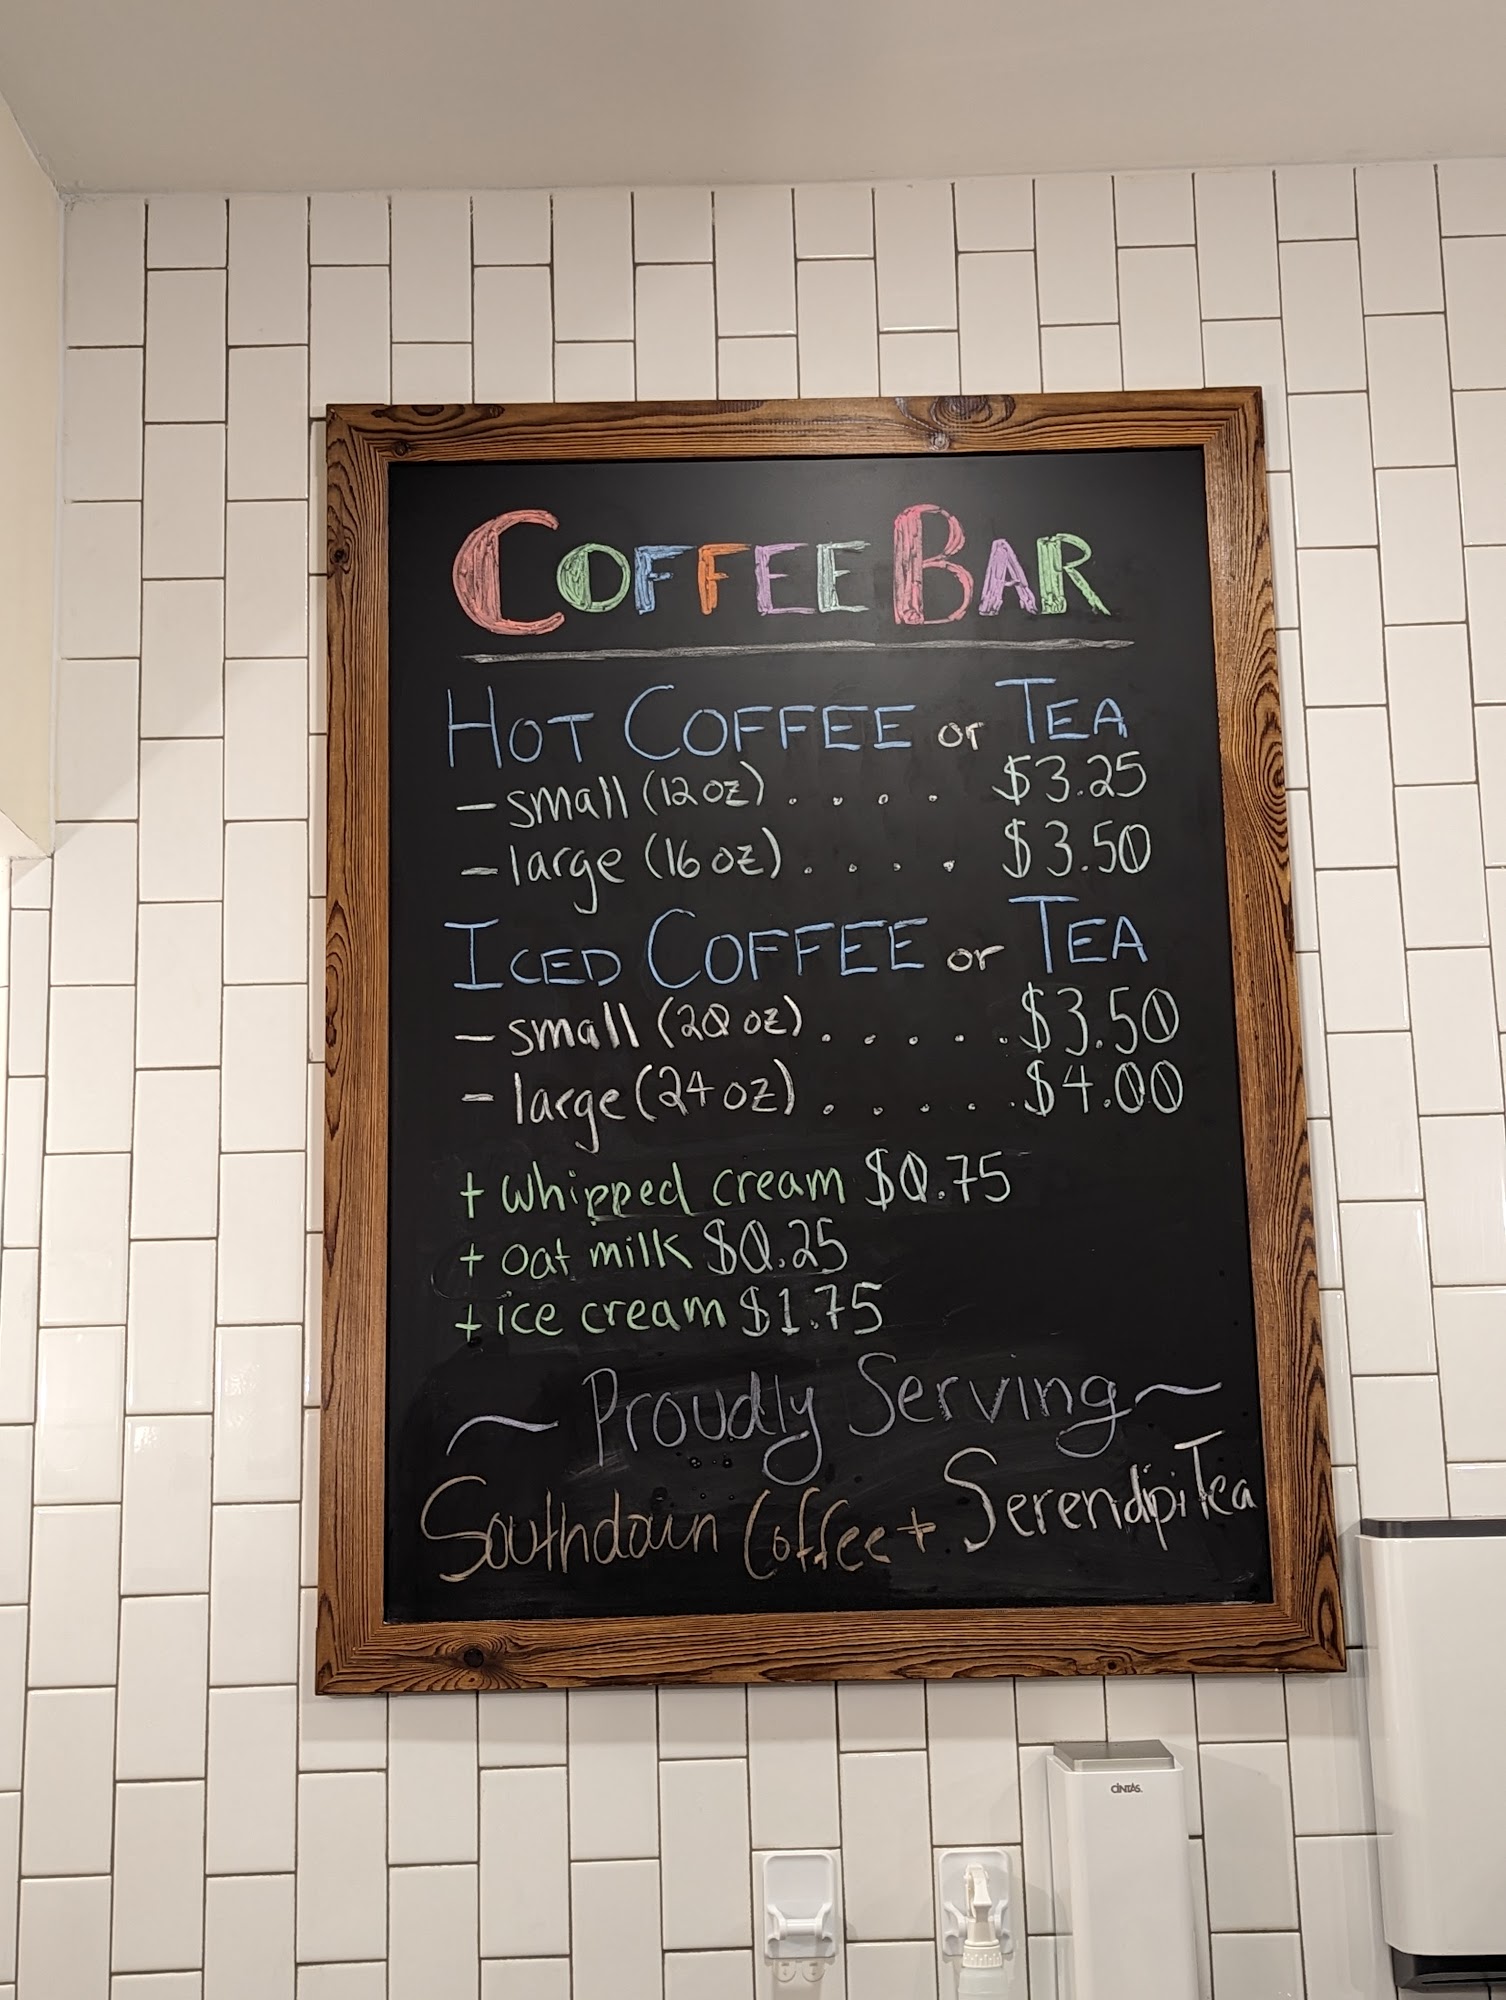 COFFEE BAR
HOT COFFEE or TEA
- small (12 oz) . . . . $3.25
- large (16 oz) . . . . $3.50
ICED COFFEE or TEA
- small (20 oz) . . . . . $3.50
- large (24 oz) . . . . . $4.00
+ whipped cream $0.75
+ oat milk $0.25
+ ice cream $1.75
~ Proudly Serving ~
Southdown Coffee + SerendipiTea
CINTAS.